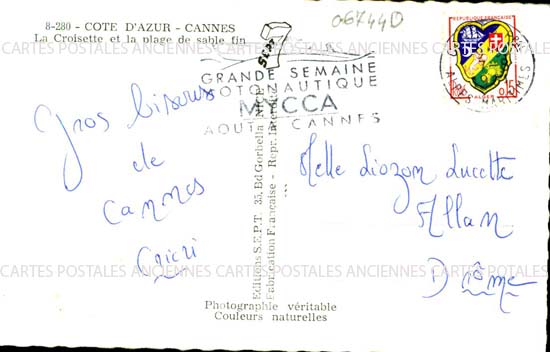 8-280 - COTE D'AZUR - CANNES
La Croisette et la plage de sable fin
06744D
GRANDE SEMAINE
MOTONAUTIQUE
MYCCA
AOUT CANNES
REPUBLIQUE FRANÇAISE
ALPES MARITIMES
Gros bisous
de
Cannes
Melle Liozon Lucette
Allan
Drôme
Editions S.E.P.T. 35, Bd Gorbella NICE
Fabrication Française - Repr. Interdite
CARTES POSTALES ANCIENNES CARTES POSTALES ANCIENNES CARTES POSTALES ANCIENNES
Photographie véritable
Couleurs naturelles